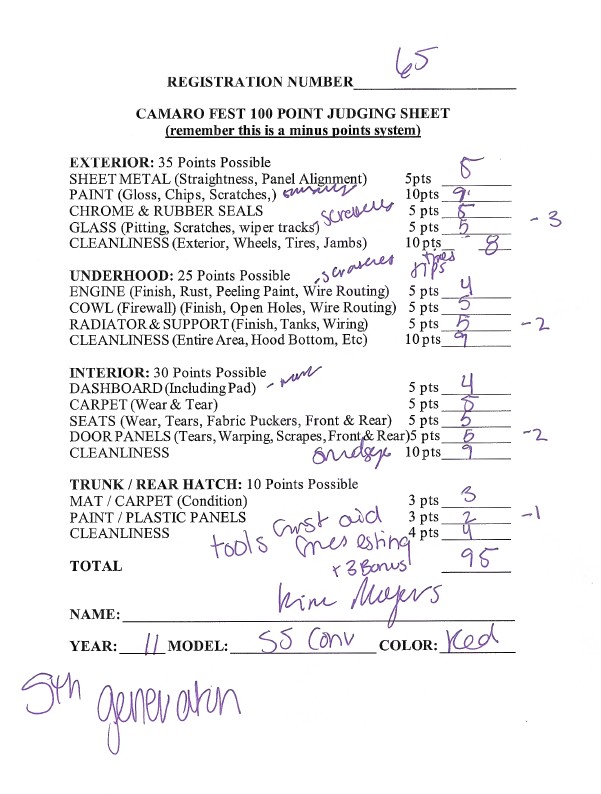 REGISTRATION NUMBER 65
CAMARO FEST 100 POINT JUDGING SHEET
(remember this is a minus points system)
EXTERIOR: 35 Points Possible
SHEET METAL (Straightness, Panel Alignment) 5pts 5
PAINT (Gloss, Chips, Scratches,) 10pts 9
CHROME & RUBBER SEALS 5 pts 5
GLASS (Pitting, Scratches, wiper tracks) 5 pts 5 - 3
CLEANLINESS (Exterior, Wheels, Tires, Jambs) 10 pts 8
tires
tips
UNDERHOOD: 25 Points Possible
ENGINE (Finish, Rust, Peeling Paint, Wire Routing) 5 pts 4
COWL (Firewall) (Finish, Open Holes, Wire Routing) 5 pts 5
RADIATOR & SUPPORT (Finish, Tanks, Wiring) 5 pts 5 - 2
CLEANLINESS (Entire Area, Hood Bottom, Etc) 10 pts 9
INTERIOR: 30 Points Possible
DASHBOARD (Including Pad) - 5 pts 4
CARPET (Wear & Tear) 5 pts 5
SEATS (Wear, Tears, Fabric Puckers, Front & Rear) 5 pts 5
DOOR PANELS (Tears, Warping, Scrapes, Front & Rear) 5 pts 5 - 2
CLEANLINESS 10 pts 9
TRUNK / REAR HATCH: 10 Points Possible
MAT / CARPET (Condition) 3 pts 3
PAINT / PLASTIC PANELS 3 pts 2 - 1
CLEANLINESS 4 pts 4
tools
TOTAL + 3 Bonus 95
NAME: Kim Mayers
YEAR: 11 MODEL: SS Conv COLOR: Red
5th generation